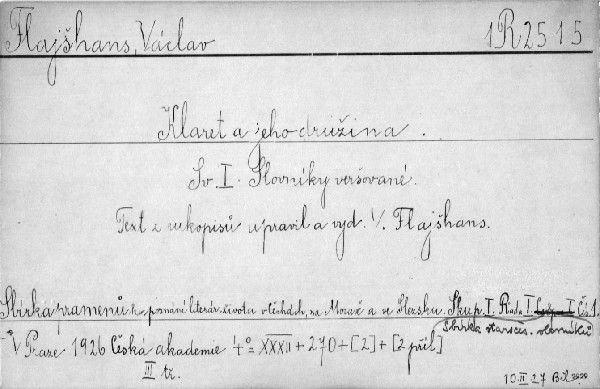 Flajšhans, Václav 1R2515
Klaret a jeho družina.
Sv. I. Slovníky veršované.
Text z rukopisů upravil a vyd. V. Flajšhans.
Sbírka pramenů k poznání literár. života v Čechách, na Moravě a v Slezsku. Skup. I. Řada I. Čís. 1.
Sbírka staročes. slovníků
V Praze 1926 Česká akademie 4° XXXII + 270 + [2] + [2 příl.]
III tř.
10.II.27